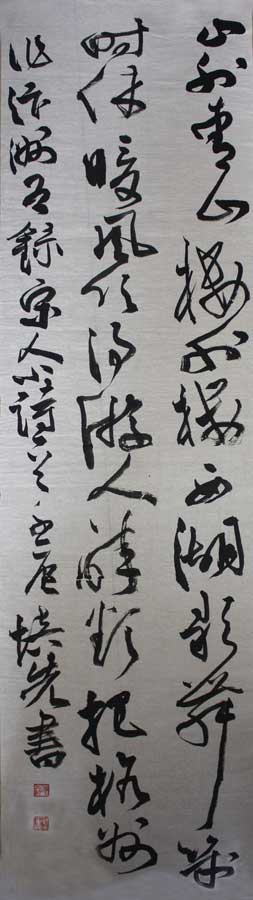 山外青山楼外楼西湖歌舞几
时休暖风熏得游人醉直把杭州
作汴州右录宋人小诗一首
培先书